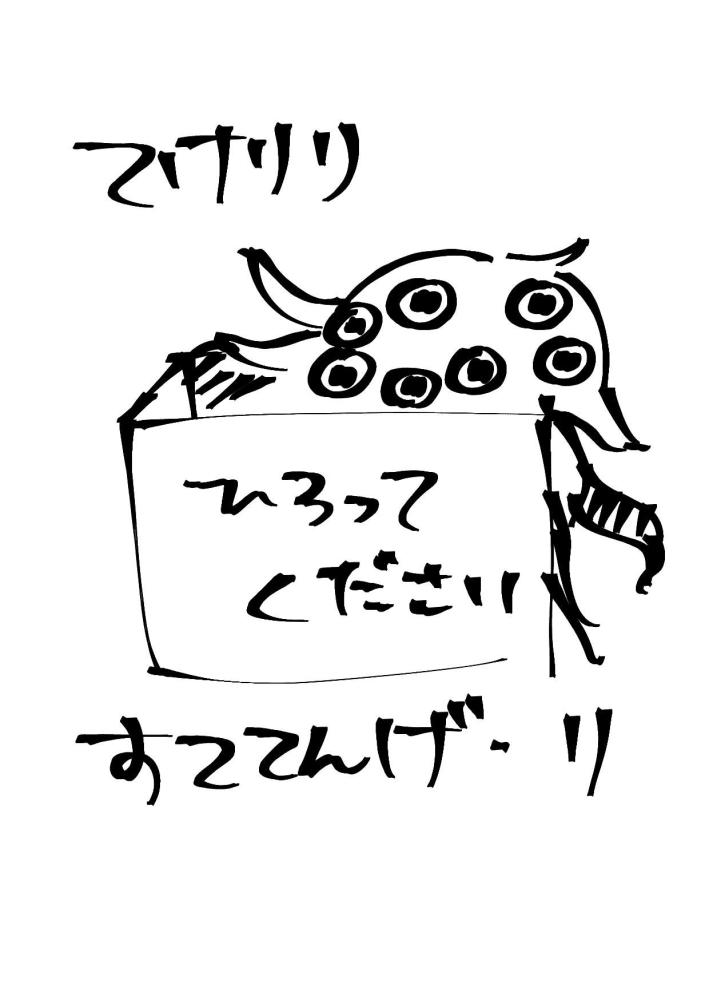 てけりり
ひろって
ください
すててんげ・り